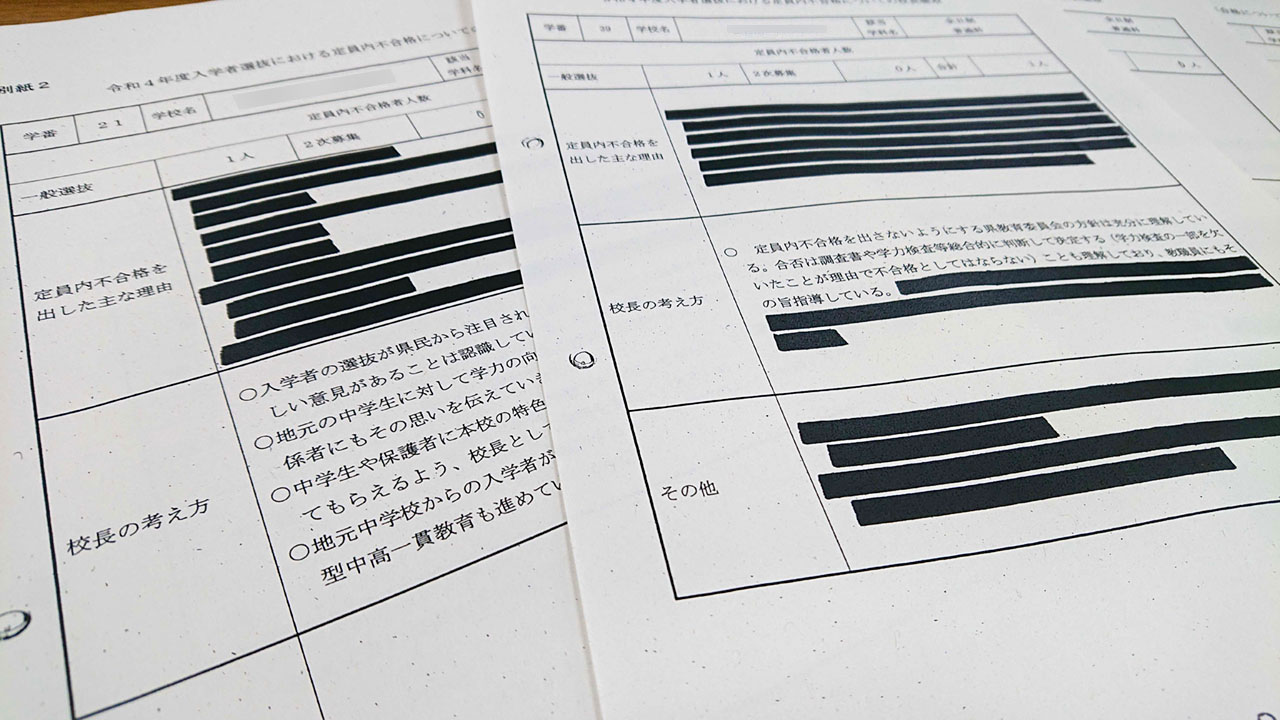 別紙2
令和4年度入学者選抜における定員内不合格についての
学番
21
学校名
該当
学科名
定員内不合格者人数
一般選抜
1人
2次募集
0
定員内不合格を
出した主な理由
校長の考え方
○入学者の選抜が県民から注目され
しい意見があることは認識してい
○地元の中学生に対して学力の向
係者にもその思いを伝えていき
○中学生や保護者に本校の特色
てもらえるよう、校長として
○地元中学校からの入学者が
型中高一貫教育も進めてい
学番
学校名
該当
学科名
全日制
普通科
定員内不合格者人数
一般選抜
1人
2次募集
0人
合計
1人
定員内不合格を
出した主な理由
校長の考え方
○ 定員内不合格を出さないようにする県教育委員会の方針は充分に理解してい
る。合否は調査書や学力検査等総合的に判断して決定する（学力検査の一部を欠
いたことが理由で不合格としてはならない）ことも理解しており、教職員にもそ
の旨指導している。
その他
全日制
普通科